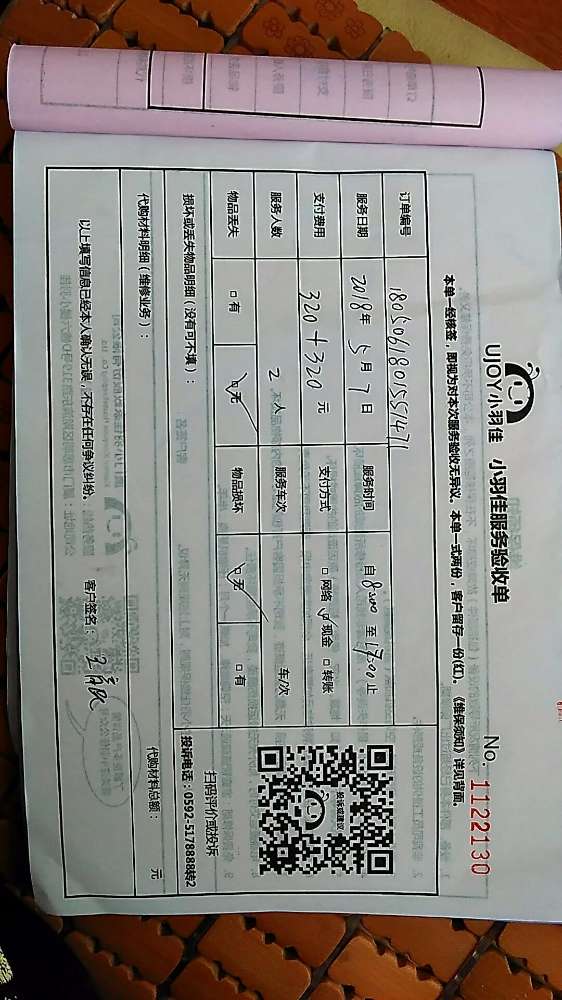 UJOY小羽佳 小羽佳服务验收单
No. 1122130
本单一经核签，即视为对本次服务验收无异议。本单一式两份，客户留存一份(红)。《维保须知》详见背面。
订单编号 1805061801557471
服务日期 2018年 5月 7日 服务时间 自8:00至17:00止
支付费用 320+320 元 支付方式 □网络 ☑现金 □转账
服务人数 2 人 服务车次 车/次
物品丢失 □有 ☑无 物品损坏 ☑无 □有
投诉或建议
扫码评价或投诉
投诉电话：0592-5178888转2
损坏或丢失物品明细（没有可不填）：
代购材料明细（维修业务）： 代购材料总额： 元
以上填写信息已经本人确认无误，不存在任何争议纠纷。 客户签名：